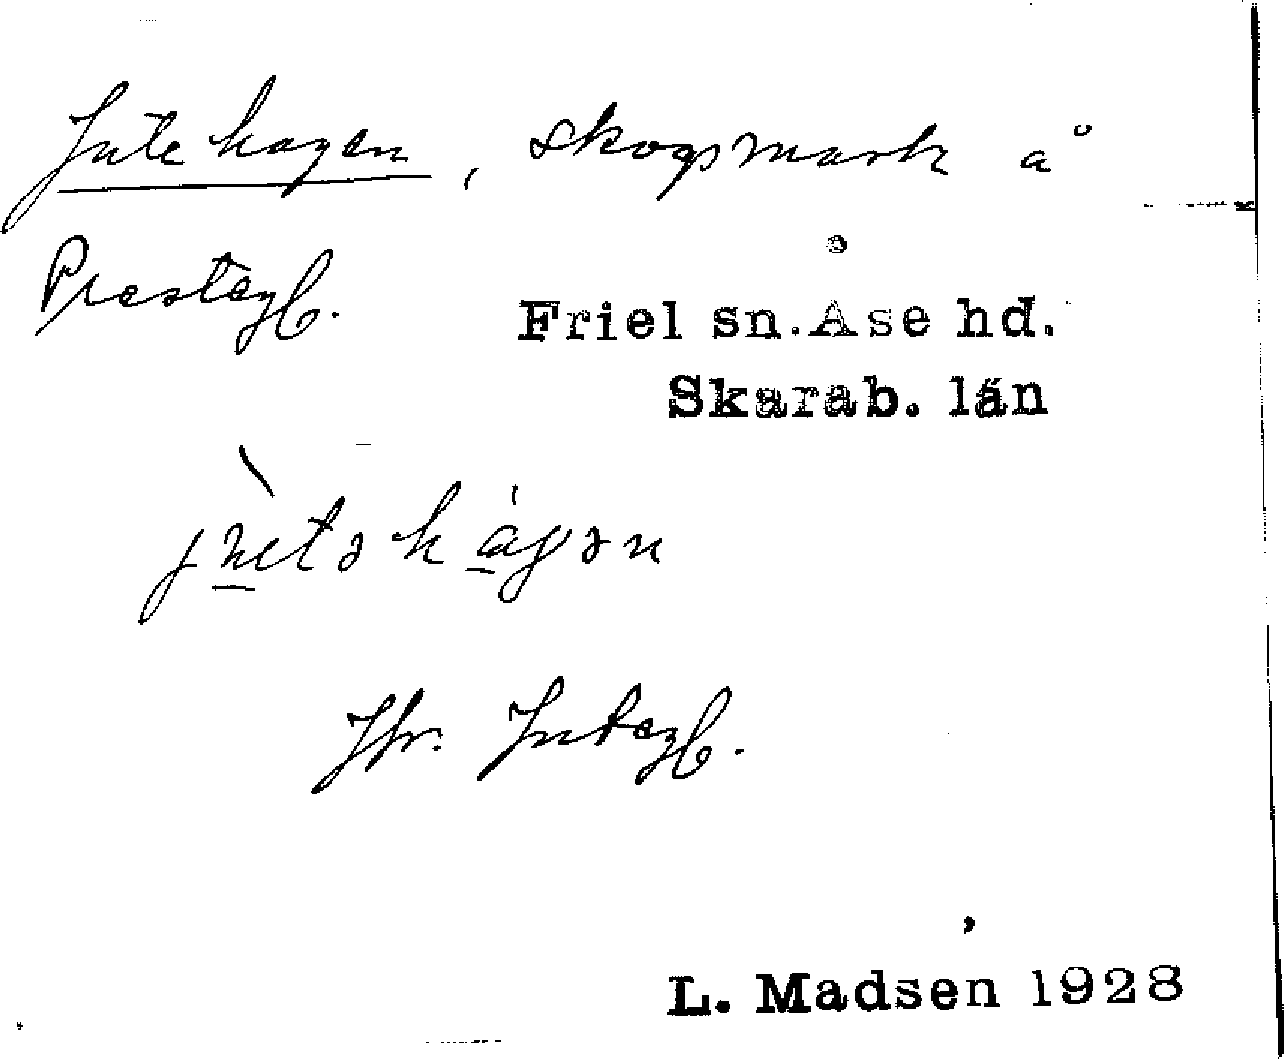 Jutehagen, skogsmark å
Prästegb.
Friel sn. Åse hd.
Skarab. län
jùtəhágən
Jfr. Jutegb.
L. Madsen 1928